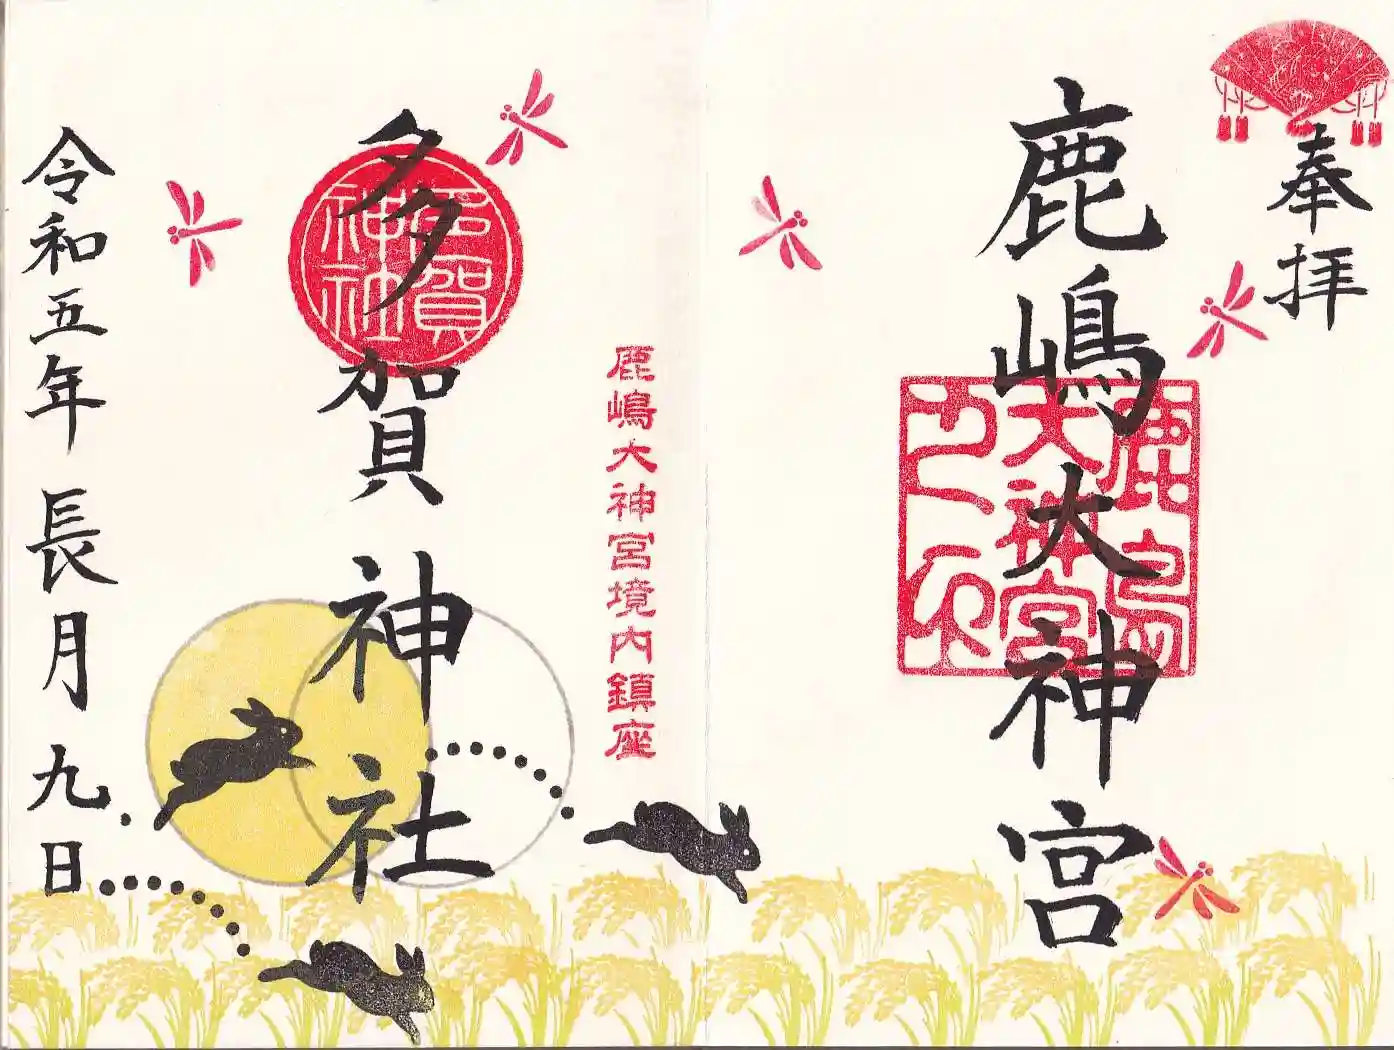 奉拝
鹿嶋大神宮
鹿島
大神宮
鹿嶋大神宮境内鎮座
多賀神社
多賀
神社
令和五年長月九日